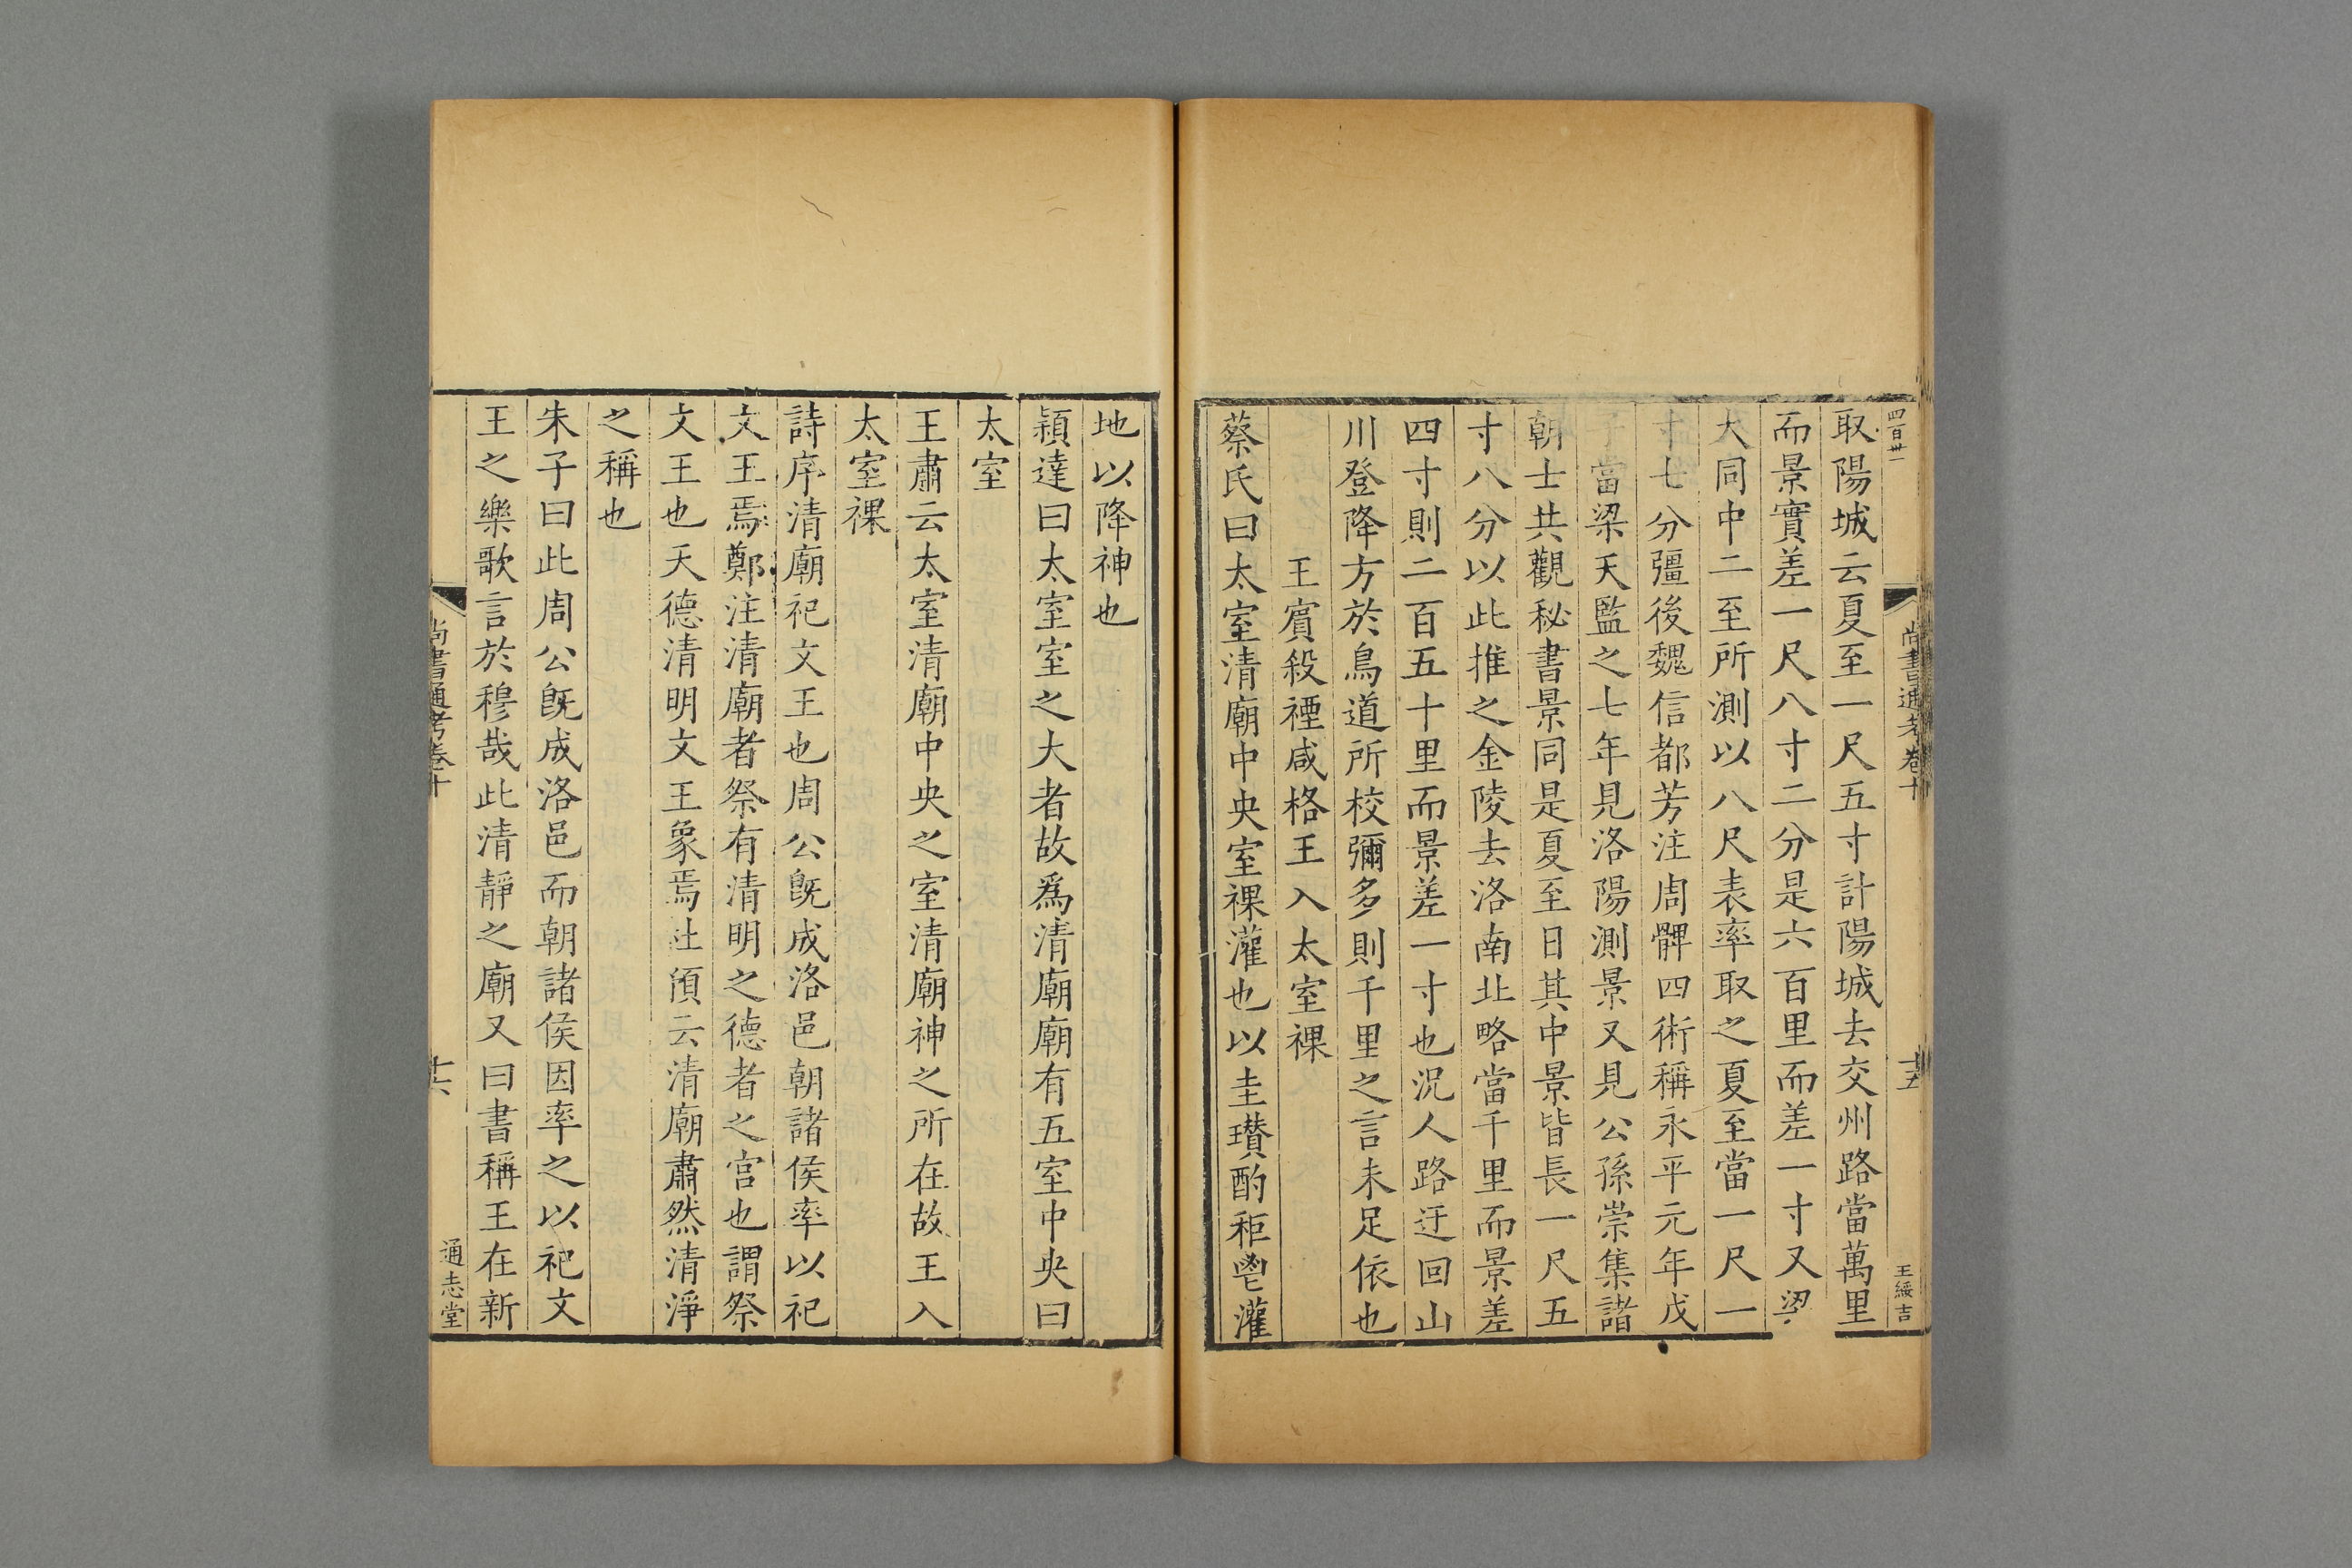 四百卅一
尚書通考卷十
十五
王綏吉
取陽城云夏至一尺五寸計陽城去交州路當萬里
而景實差一尺八寸二分是六百里而差一寸又梁
大同中二至所測以八尺表率取之夏至當一尺一
寸七分彊後魏信都芳注周髀四術稱永平元年戊
子當梁天監之七年見洛陽測景又見公孫崇集諸
朝士共觀秘書景同是夏至日其中景皆長一尺五
寸八分以此推之金陵去洛南北略當千里而景差
四寸則二百五十里而景差一寸也況人路迂回山
川登降方於鳥道所校彌多則千里之言未足依也
王賔殺禋咸格王入太室祼
蔡氏曰太室清廟中央室祼灌也以圭瓉酌秬鬯灌
地以降神也
穎達曰太室室之大者故爲清廟廟有五室中央曰
太室
王肅云太室清廟中央之室清廟神之所在故王入
太室祼
詩序清廟祀文王也周公旣成洛邑朝諸侯率以祀
文王焉鄭注清廟者祭有清明之德者之宫也謂祭
文王也天德清明文王象焉杜預云清廟肅然清淨
之稱也
朱子曰此周公旣成洛邑而朝諸侯因率之以祀文
王之樂歌言於穆哉此清靜之廟又曰書稱王在新
尚書通考卷十
十六
通志堂